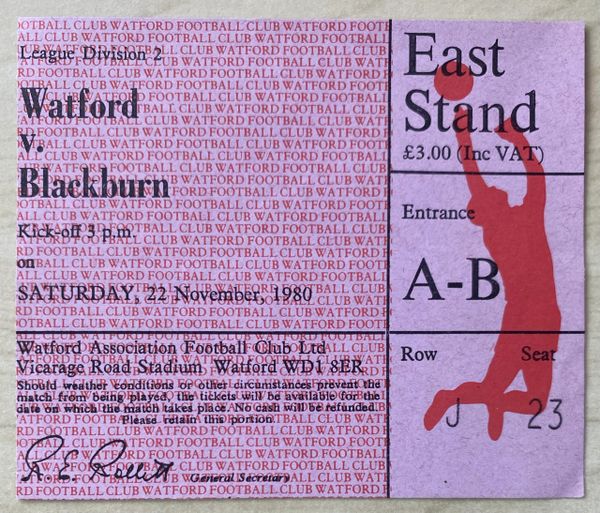 League Division 2
Watford
v.
Blackburn
Kick-off 3 p.m.
on
SATURDAY, 22 November, 1980
Watford Association Football Club Ltd
Vicarage Road Stadium Watford WD1 8ER
Should weather conditions or other circumstances prevent the
match from being played, the tickets will be available for the
date on which the match takes place. No cash will be refunded.
Please retain this portion.
General Secretary
East
Stand
£3.00 (Inc VAT)
Entrance
A-B
Row Seat
J 23